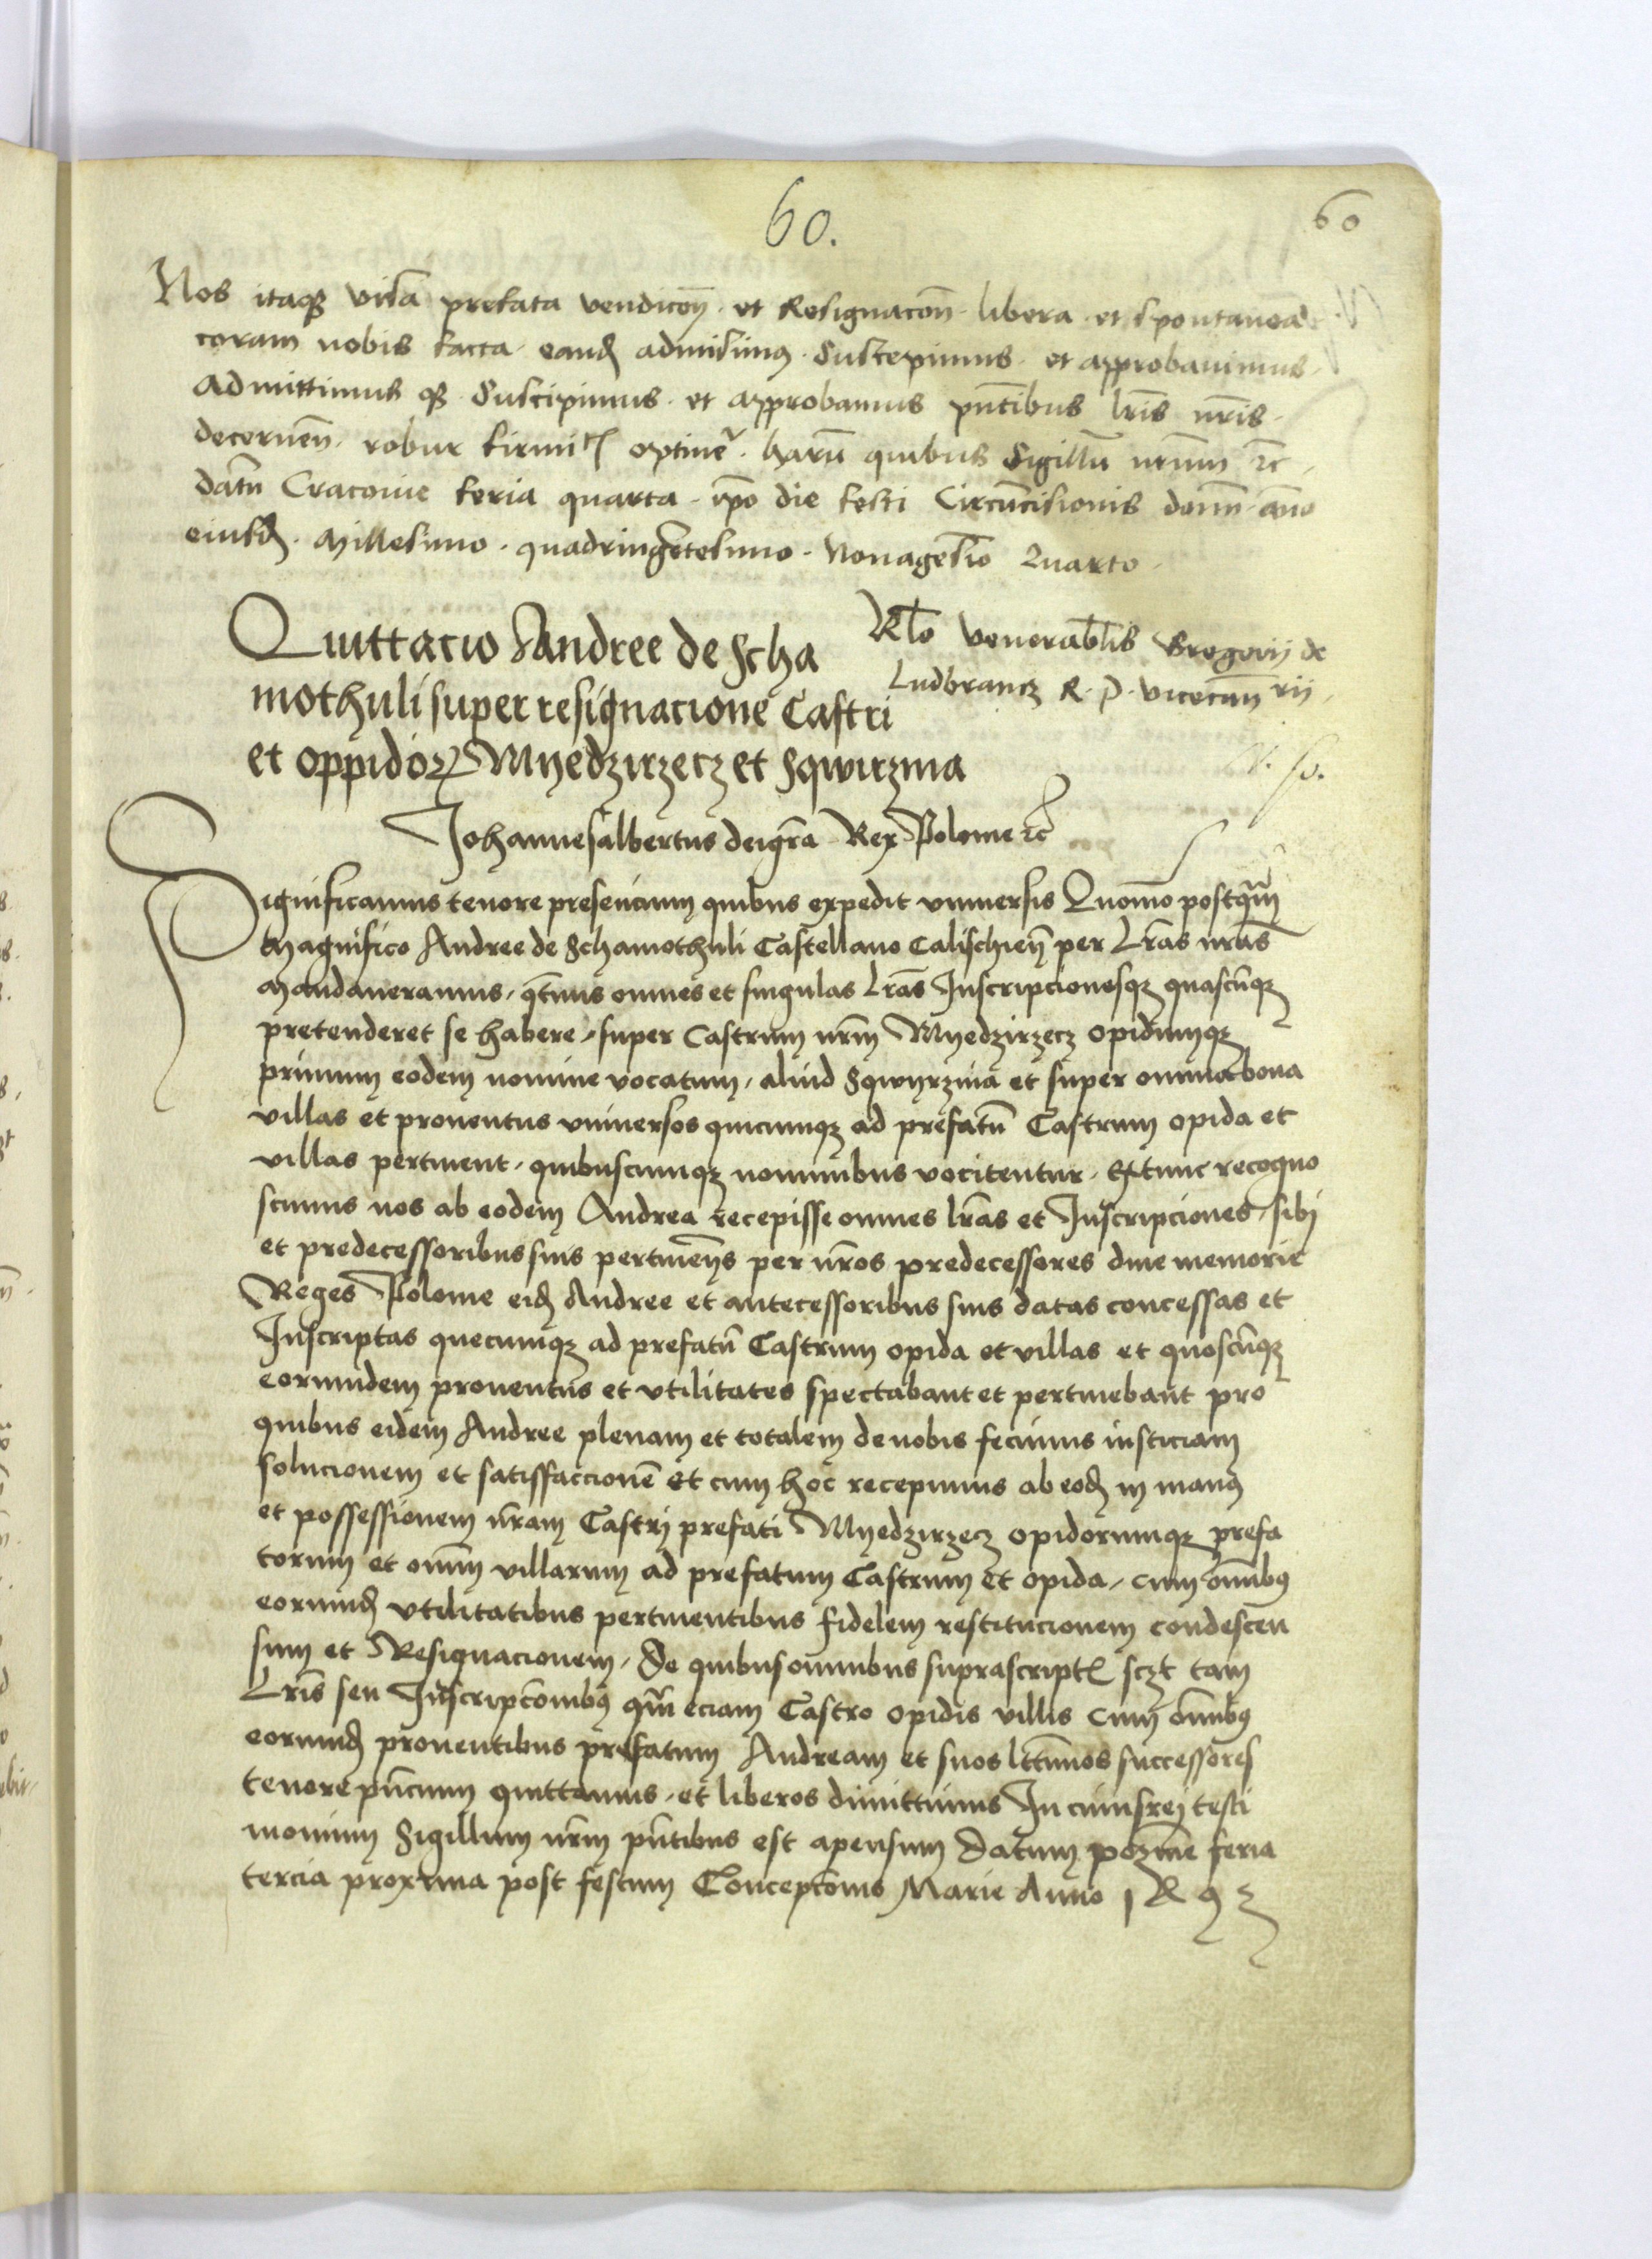 60.
60
Nos itaqꝫ visa prefata vendicoñ. et Resignacoñ libera et spontanea
coram nobis facta eand admisimꝰ. Suscepimus et approbavimus.
Admittimus qꝫ Suscipimus. et approbamus pñtibus lris nris.
decernen. robur firmitꝭ optinere. harū quibus Sigillū nrum ꝛc.
datū Cracovie feria quarta ipo die festi Circūcisionis domini anno
eiusd. Millesimo. quadringētesimo. Nonagesio Quarto.
Rlo venerablis Gregorij de
Ludbrancz R. P. vicecan rij.
Quittacio Andree de Scha
mothuli super resignacione Castri
et oppidoꝝ Myedzirzecz et Sqwirzina
Johannes albertus dei gra Rex Polonie ꝛc
Significamus tenore presencium quibus expedit vniuersis Quomo postqm
Magnifico Andree de Schamothuli Castellano Calischien per Lras nras
Mandaueramus, qtinus omnes et singulas Lras Inscripcionesqꝫ quascūqꝫ
pretenderet se habere, super Castrum nrm Myedzirzecz opidumqꝫ
primum eodem nomine vocatum, aliud Sqwyrzina et super omnia bona
villas et prouentus vniuersos quicumqꝫ ad prefatū Castrum opida et
villas pertinent, quibuscumqꝫ nominibus vocitentur. Ex tunc recogno
scimus nos ab eodem Andrea recepisse omnes lras et Inscripciones, sibi
et predecessoribus suis pertinens per nros predecessores diue memorie
Reges Polonie eid Andree et antecessoribus suis datas concessas et
Inscriptas quecumqꝫ ad prefatū Castrum opida et villas et quoscūqꝫ
eorumdem prouentus et vtilitates spectabant et pertinebant pro
quibus eidem Andree plenam et totalem de nobis fecimus iusticiam
solucionem et satisfaccionē et cum hoc recepimus ab eod in manꝰ
et possessionem nram Castri prefati Myedzirzecz opidorumqꝫ prefa
torum et omm villarum ad prefatum Castrum et opida, cum omibꝰ
eorumd vtilitatibus pertinentibus fidelem restitucionem condescen
sum et Resignacionem, De quibus omnibus suprascriptꝭ sczt tam
Lris seu Inscripcombꝰ qm eciam Castro opidis villis cum omibꝰ
eorumd prouentibus prefatum Andream et suos lttimos successores
tenore pñcium quittamus, et liberos dimittimus In cuius rei testi
monium Sigillum nrm pñtibus est apensum Datum Poznnie feria
tercia proxima post festum Concepcōnis Marie Anno 1 Ꝝ 9 3